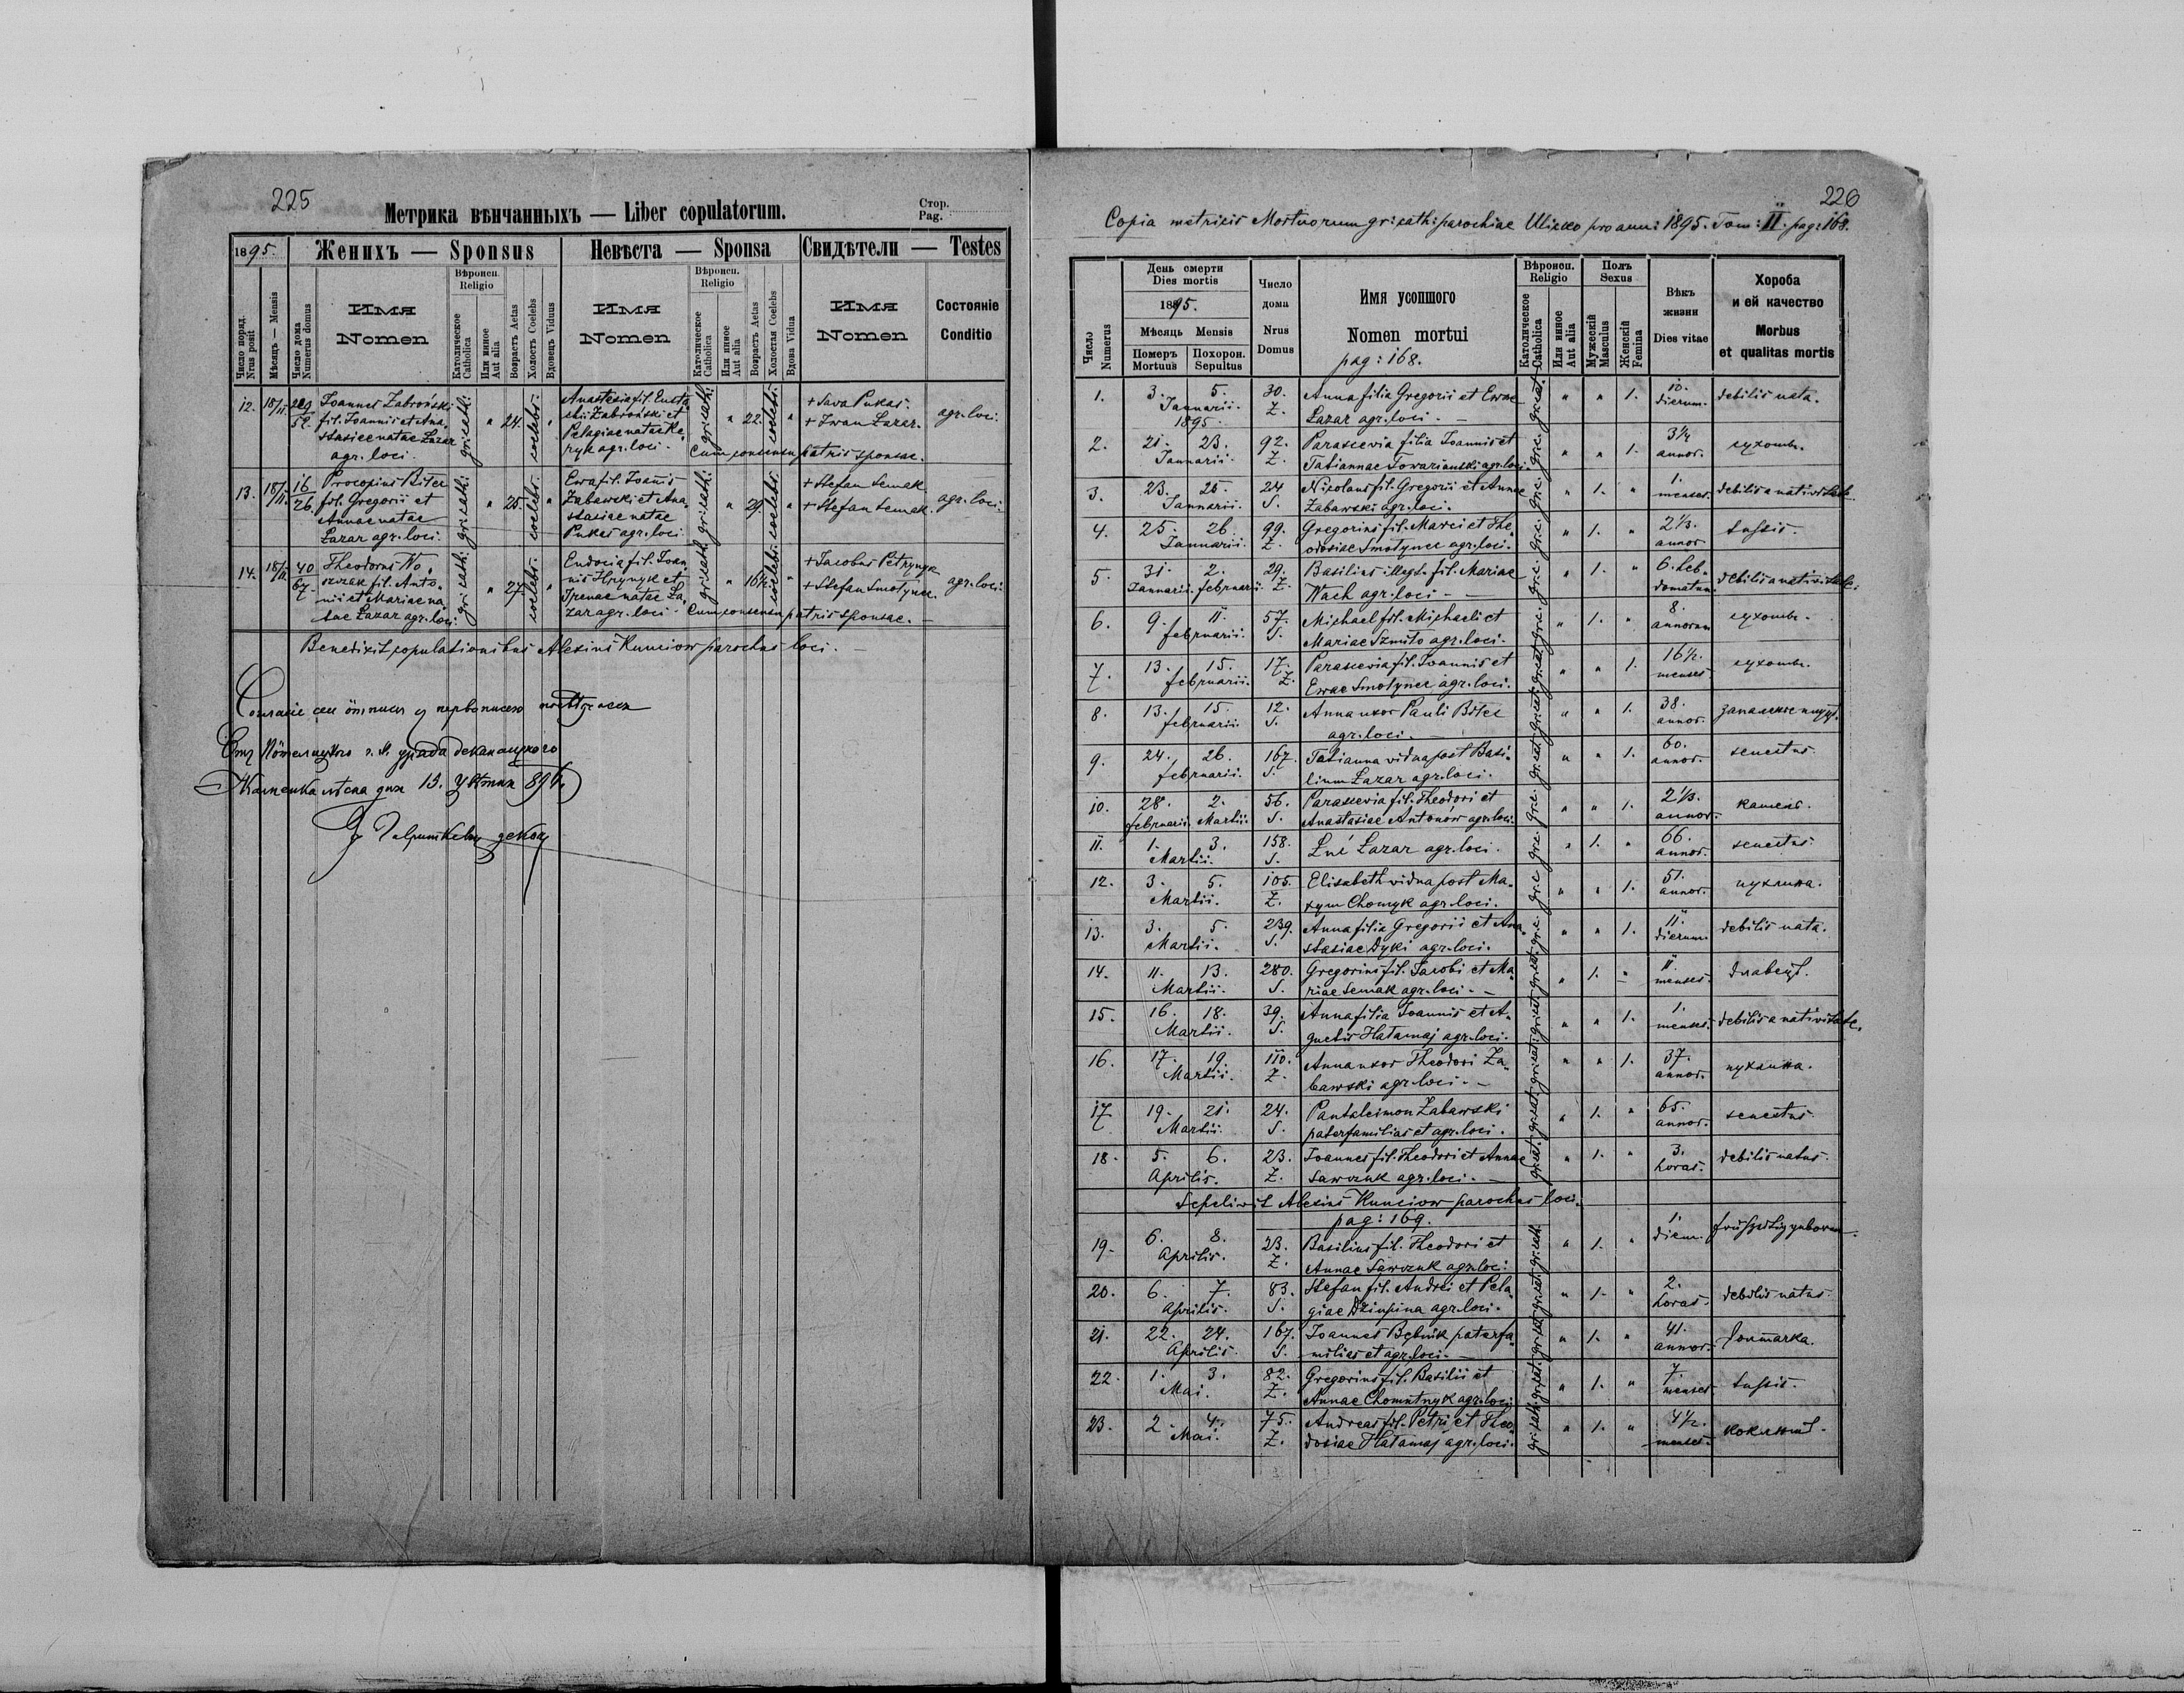 225
Метрика вѣнчанныхъ — Liber copulatorum.
Стор.
Pag.
1895.
Женихъ — Sponsus
Невѣста — Sponsa
Свидѣтели — Testes
Число поряд.
Nrus posit
Мѣсяць — Mensis
Число дома
Numerus domus
Имя
Nomen
Вѣроисп.
Religio
Католическое
Catholica
Или инное
Aut alia
Возрастъ Aetas
Холостъ Coelebs
Вдовець Viduus
Имя
Nomen
Вѣроисп.
Religio
Католическое
Catholica
Или инное
Aut alia
Возрастъ Aetas
Холостая Coelebs
Вдова Vidua
Имя
Nomen
Состояніе
Conditio
12. 18/II.
Joannes Zabroński
fil. Joannis et Ana,
stasiae natae Łazar
agr. loci.
gr: cath: " 24. coelebs. "
Anastasia fil. Eusta,
chii Zabroński et
Pelagiae natae
agr. loci.
gr: cath: " 22. coelebs. "
+ Sava Pukas.
+ Iwan Łazar.
agr. loci.
Cum consensu patris sponsae.
13. 18/II. 16/26.
Procopius Bilec
fil. Gregorii et
Annae natae
Łazar agr. loci.
gr: cath: " 25. coelebs. "
Ewa fil. Joannis
Zabawski et Ana,
stasiae natae
Pukas agr. loci.
gr: cath: " 29. coelebs. "
+ Stefan Semak
+ Stefan Semak.
agr. loci.
14. 18/II. 40/67.
Theodorus Wo,
fil. Anto,
nii et Mariae na,
tae Łazar agr. loci.
gr: cath: " 27. coelebs.
Eudocia fil. Joan,
nis Hrynyk et
Irenae natae Ła,
zar agr. loci.
gr: cath: " 16½. coelebs. "
+ Jacobus Petrynyk
+ Stefan Smotynec.
agr. loci.
Cum consensu patris sponsae. —
Benedixit copulationibus Alexius Kunciow parochus loci. —
226
Copia metricis Mortuorum gr: cath: parochiae Ulicko pro anno: 1895. Tom: II. pag: 168.
Число
Numerus
День смерти
Dies mortis
1895.
Мѣсяць Mensis
Померъ
Mortuus
Похорон.
Sepultus
Число
дома
Nrus
Domus
Имя усопшого
Nomen mortui
pag: 168.
Вѣроисп.
Religio
Католическое
Catholica
Или инное
Aut alia
Полъ
Sexus
Мужескій
Masculus
Женскій
Femina
Вѣкъ
жизни
Dies vitae
Хороба
и ей качество
Morbus
et qualitas mortis
1. 3. 5. Januarii. 1895. 30. Z.
Anna filia Gregorii et Ewae
Łazar agr. loci. —
gr: cat. " " 1. 10. dierum. debilis nata.
2. 21. 23. Januarii. 92. Z.
Parascevia filia Joannis et
Tatiannae Towariański agr. loci.
gr: c. " " 1. 3½ annor. сухоты.
3. 23. 25. Januarii. 24 S.
Nicolaus fil. Gregorii et Annae
Zabawski agr. loci.
gr: c. " 1. " 1. menses. debilis a nativitate
4. 25. 26. Januarii. 99. Z.
Gregorius fil. Marci et The,
odosiae Smotynec agr. loci.
gr: c. " 1. " 2⅓. annor. tussis.
5. 31. Januarii. 2. februarii. 29. Z.
Basilius illegt. fil. Mariae
Wach agr. loci — —
gr: c. " 1. " 6. heb,
domatum. debilis a nativitate.
6. 9. 11. februarii. 57. S.
Michael fil. Michaeli et
Mariae Szmito agr. loci.
gr: c. " 1. " 8. annorum сухоты.
7. 13. 15. februarii. 17. Z.
Parascevia fil. Joannis et
Ewae Smotynec agr. loci.
gr: cat. " " 1. 16½. menses. сухоты.
8. 13. 15. februarii. 12. S.
Anna uxor Pauli Bilec
agr. loci. —
gr: cat. " " 1. 38. annor.
9. 24. 26. februarii. 167. S.
Tatianna vidua post Basi,
lium Łazar agr. loci.
gr: cat. " " 1. 60. annor. senectus
10. 28. februarii. 2. Martii. 56. S.
Parascevia fil. Theodori et
Anastasiae Antonów agr. loci.
gr: c. " " 1. 2⅓. annor. кашель.
11. 1. 3. Martii. 158. S.
Łuć Łazar agr. loci.
gr: c. " 1. " 66. annor. senectus
12. 3. 5. Martii. 105. Z.
Elisabeth vidua post Ma,
xym Chomyk agr. loci.
gr: c " " 1. 51. annor. пухлина.
13. 3. 5. Martii. 239. S.
Anna filia Gregorii et Ana,
stasiae Dyki agr. loci.
gr: c. " " 1. 11. dierum. debilis nata.
14. 11. 13. Martii. 280. S.
Gregorius fil. Jacobi et Ma,
riae Semak agr. loci. —
gr: cat. " 1. " 11. menses. давець.
15. 16. 18. Martii. 39. S.
Anna filia Joannis et A,
gnetis Hatamaj agr. loci.
gr: cat. " " 1. 1. menses. debilis a nativitate.
16. 17. 19. Martii. 110. Z.
Anna uxor Theodori Za,
bawski agr. loci. —
gr: cat. " " 1. 37. annor. пухлина.
17 19. 21. Martii. 24. S.
Pantaleimon Zabawski
paterfamilias et agr. loci.
gr: cat. " 1. " 65. annor. senectus
18. 5. 6. Aprilis. 23. Z.
Joannes fil. Theodori et Annae
Sawczuk agr. loci. —
gr: cat. " 1. " 3. horas. debilis natus.
Sepelivit Alexius Kunciow parochus loci.
pag: 169.
19. 6. 8. Aprilis. 23. Z.
Basilius fil. Theodori et
Annae Sawczuk agr. loci.
gr: cath. " 1. " 1. diem.
20. 6. 7. Aprilis. 83. S.
Stefan fil. Andrei et Pela,
giae Dziupina agr. loci.
gr: cat " 1. " 2. horas. debilis natus
21. 22. 24. Aprilis. 167. S.
Joannes Bębnik paterfa,
milias et agr. loci. —
gr: cat " 1. " 41. annor.
22. 1. 3. Mai. 82. Z.
Gregorius fil. Basilii et
Annae Chomutnyk agr. loci.
gr: cat. " 1. " 7. menses. tussis.
23. 2 4. Mai. 75. Z.
Andreas fil. Petri et Theo,
dosiae Hatamaj agr. loci.
gr: cath. " 1. " 4½. menses. коклюшъ.